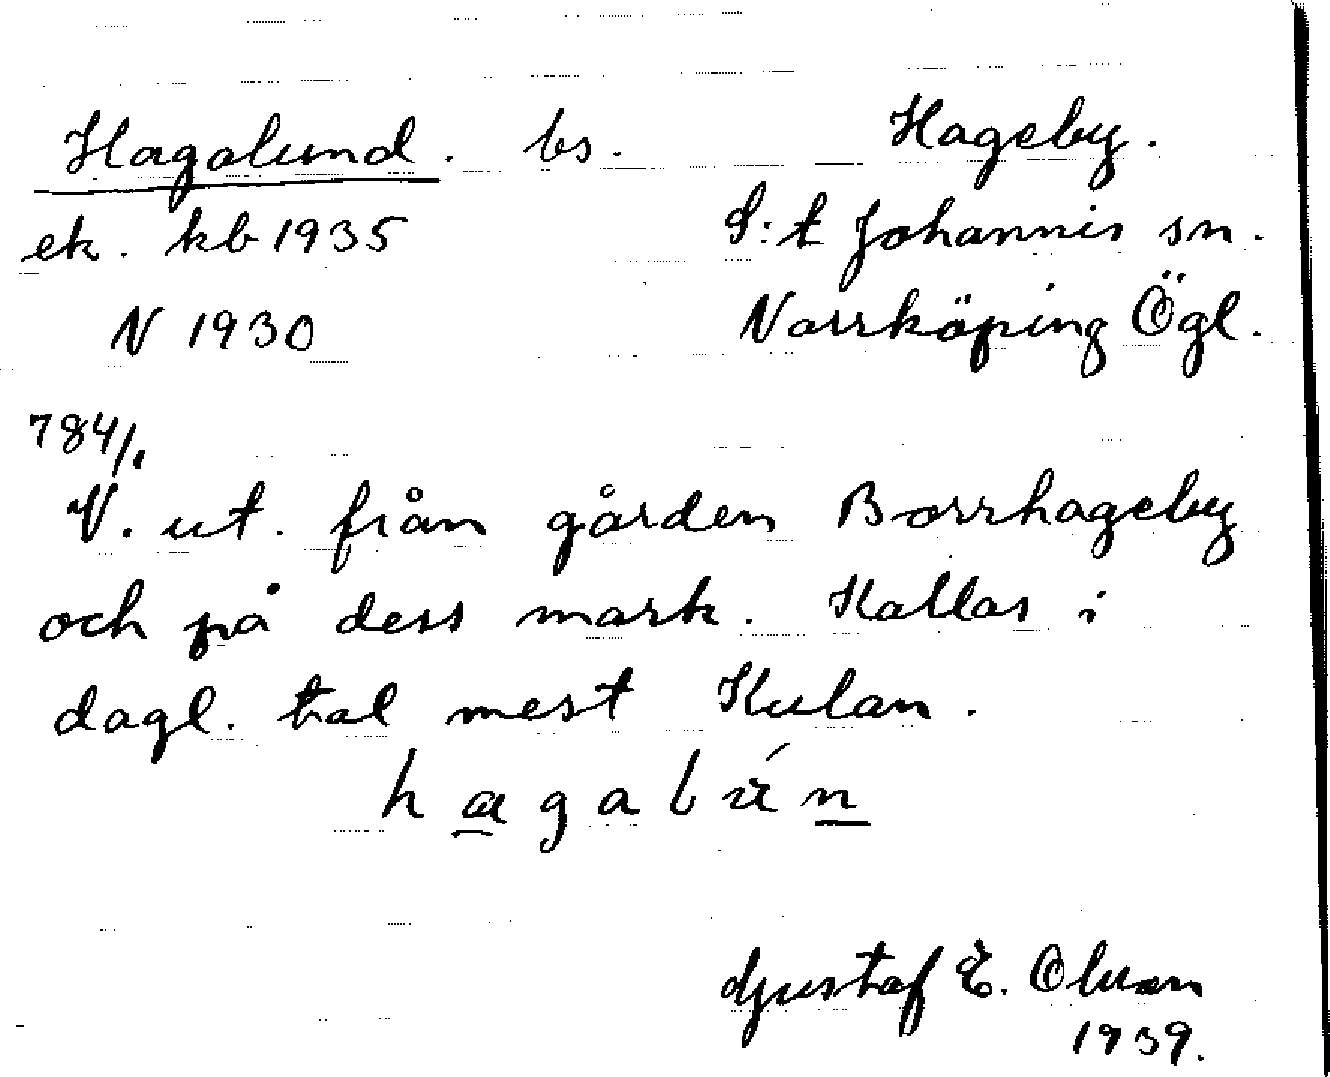 Hagalund. bs. Hageby.
ek. kb 1935 S:t Johannis sn.
N 1930 Norrköping Ögl.
784/1
V. ut. från gården Borrhageby
och på dess mark. Kallas i
dagl. tal mest Kulan.
Gustaf E. Olsson
1939.